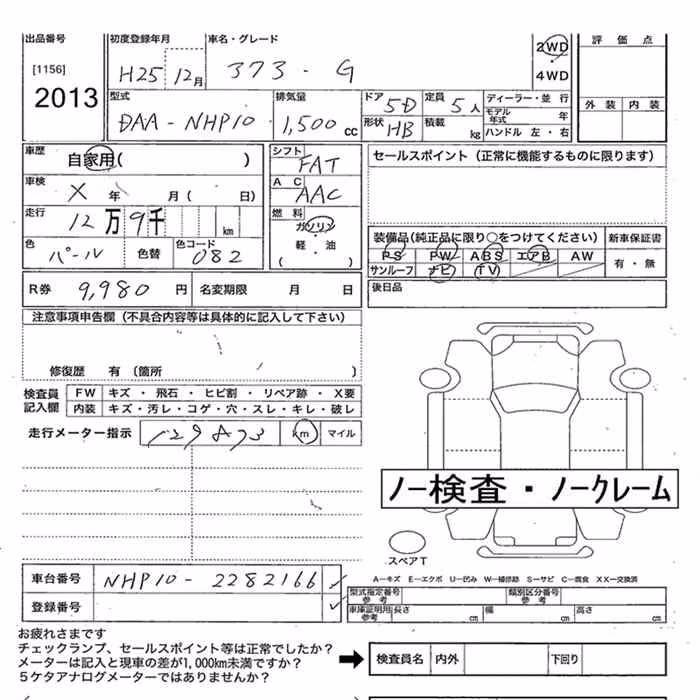 出品番号 初度登録年月 車名・グレード 2WD 評価点
[1156] H25 12月 373・G ・
2013 4WD
型式 排気量 ドア 5D 定員 5人 ディーラー・並行 外装 内装
DAA-NHP10 1,500cc 形状 HB 積載 kg モデル年式 年
ハンドル 左・右
車歴 自家用( ) シフト FAT セールスポイント（正常に機能するものに限ります）
車検 X 年 月( 日) AC AAC
走行 12万9千 km 燃料 ガソリン
軽・油
( )
色 パール 色替 色コード 082
装備品（純正品に限り○をつけてください） 新車保証書
PS PW ABS エアB AW 有・無
サンルーフ ナビ TV
R券 9,980円 名変期限 月 日 後日品
注意事項申告欄（不具合内容等は具体的に記入して下さい）
修復歴 有（箇所 ）
検査員記入欄 FW キズ・飛石・ヒビ割・リペア跡・X要
内装 キズ・汚レ・コゲ・穴・スレ・キレ・破レ
走行メーター指示 km マイル
ノー検査・ノークレーム
スペアT
A－キズ E－エクボ U－凹み W－補修跡 S－サビ C－腐食 XX－交換済
車台番号 NHP10-2282166
登録番号
型式指定番号参考 類別区分番号参考
車庫証明用参考 長さ cm 幅 cm 高さ cm
お疲れさまです
チェックランプ、セールスポイント等は正常でしたか？
メーターは記入と現車の差が1,000km未満ですか？
5ケタアナログメーターではありませんか？
検査員名 内外 下回り